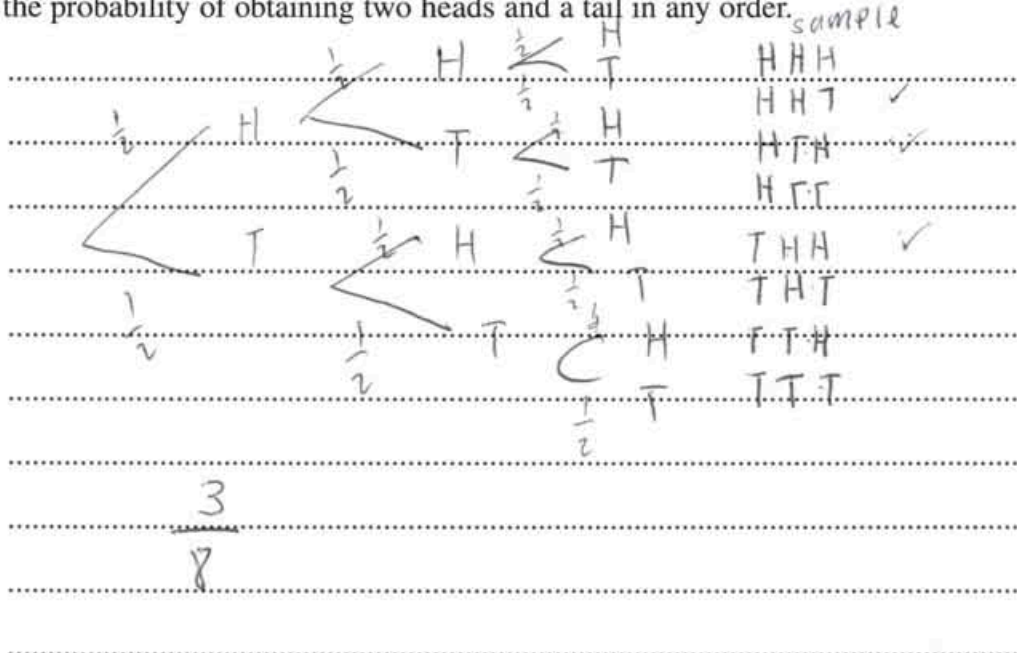 the probability of obtaining two heads and a tail in any order.
sample
1/2 H 1/2 H 1/2 H H H H
1/2 T H H T ✓
1/2 T 1/2 H H T H ✓
1/2 T H T T
1/2 T 1/2 H 1/2 H T H H ✓
1/2 T T H T
1/2 T 1/2 H T T H
1/2 T T T T
3/8